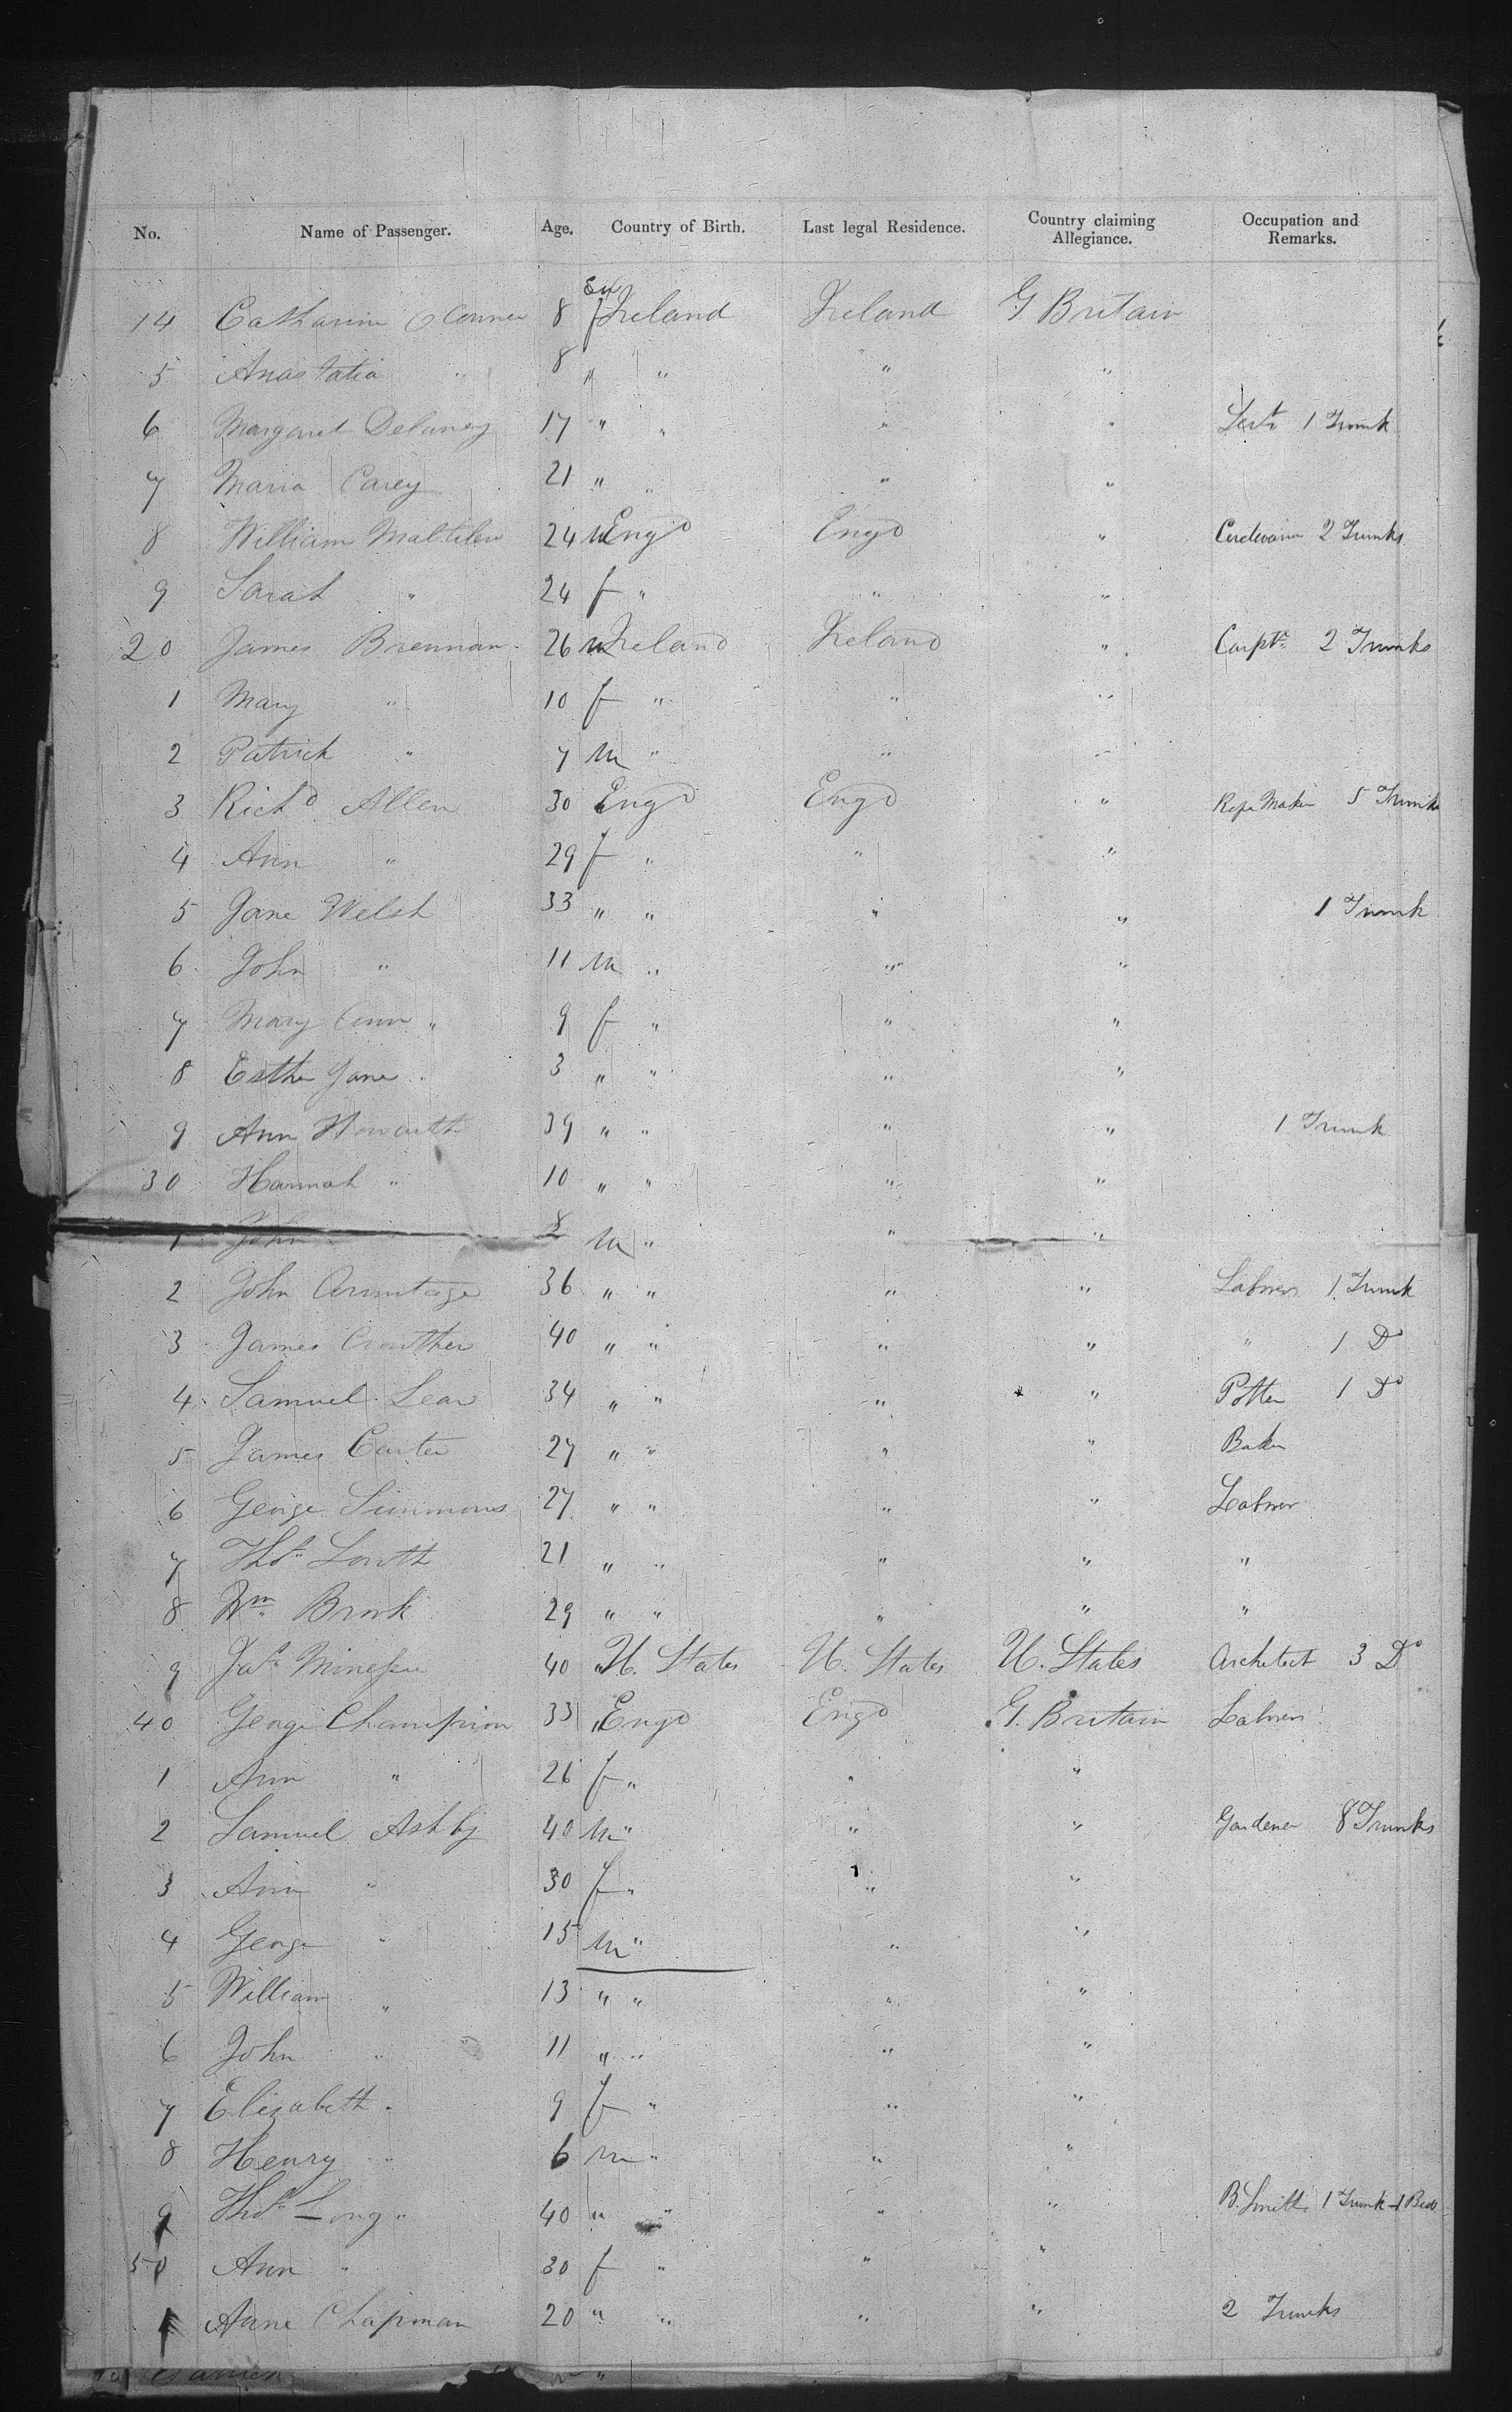 No. Name of Passenger. Age. Country of Birth. Last legal Residence. Country claiming Allegiance. Occupation and Remarks.
Sex
14 Catharine O Conner 8 f Ireland Ireland G Britain
5 Anastatia " 8 " " " "
6 Margaret Delaney 17 " " " " 1 Trunk
7 Maria Carey 21 " " " "
8 William 24 m Engd Engd " 2 Trunks
9 Sarah " 24 f " " "
20 James Brennan 26 m Ireland Ireland " Carptr 2 Trunks
1 Mary " 10 f " " "
2 Patrick " 7 m " " "
3 Richd Allen 30 Engd Engd " Rope Maker 5 Trunks
4 Ann " 29 f " " "
5 Jane Welsh 33 " " " " 1 Trunk
6 John " 11 m " " "
7 Mary Ann " 9 f " " "
8 Esther Jane " 3 " " " "
9 Ann Howarth 39 " " " " 1 Trunk
30 Hannah " 10 " " " "
1 John " 8 m " " "
2 John Armitage 36 " " " " Laborer 1 Trunk
3 James Crowther 40 " " " " " 1 Do
4 Samuel Lear 34 " " " " Potter 1 Do
5 James Carter 27 " " " " Baker
6 George Simmons 27 " " " " Laborer
7 Thos Louth 21 " " " " "
8 Wm Brook 29 " " " " "
9 Jas 40 " U. States U. States U. States Architect 3 Do
40 George Champion 33 " Engd Engd G. Britain Laborer
1 Ann " 26 f " " "
2 Samuel Ashby 40 m " " " Gardener 8 Trunks
3 Ann " 30 f " " "
4 George " 15 m " " "
5 William " 13 " " " "
6 John " 11 " " " "
7 Elizabeth " 9 f " " "
8 Henry " 6 m " " "
9 Thos Long " 40 " " " " B. Smith 1 Trunk 1 Bed
50 Ann " 30 f " " "
1 Anne Chapman 20 " " " " 2 Trunks